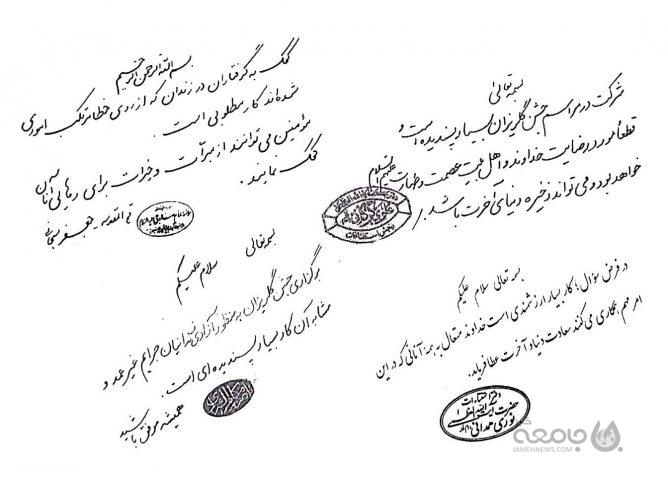 بسم الله الرحمن الرحیم
کمک به گرفتاران در زندان که از روی خطا مرتکب اموری
شده‌اند کار مطلوبی است.
مؤمنین می‌توانند از مبرآت و خیرات برای رهایی آنان
کمک نمایند.
قم المقدسه - جعفر سبحانی
بسمه تعالی
شرکت در مراسم جشن گلریزان بسیار پسندیده است و
قطعاً مورد رضایت خداوند و اهل بیت عصمت و طهارت علیهم السلام
خواهد بود و می‌تواند ذخیره دنیا و آخرت باشد.
بسمه تعالی
سلام علیکم
برگزاری جشن گلریزان به منظور آزادی زندانیان جرایم غیر عمد و
مشابه آن کار بسیار پسندیده‌ای است.
همیشه موفق باشید
بسمه تعالی سلام علیکم
در فرض سؤال؛ کار بسیار ارزشمندی است خداوند متعال به همه آنانی که در این
امر مهم همکاری می‌کنند سعادت دنیا و آخرت عطا فرماید.
دفتر استفتاءات
حضرت آیت الله العظمی
نوری همدانی
جامعه
JAMEHNEWS.COM